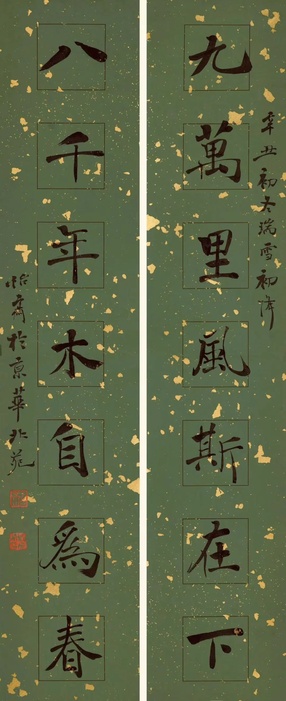 九萬里風斯在下
辛丑初冬瑞雪初降
八千年木自為春
怡齋於京華北苑